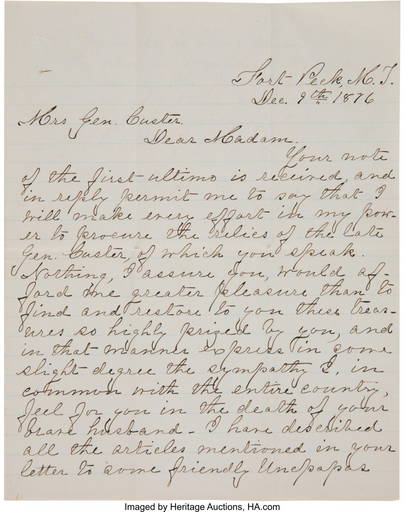 Fort Peck, M. T.
Dec. 9th 1876
Mrs Gen. Custer.
Dear Madam.
Your note
of the first ultimo is received, and
in reply permit me to say that I
will make every effort in my pow-
er to procure the relics of the late
Gen. Custer, of which you speak.
Nothing, I assure you, would af-
ford me greater pleasure than to
find and restore to you these treas-
ures so highly prized by you, and
in that manner express in some
slight degree the sympathy I, in
common with the entire country,
feel for you in the death of your
brave husband - I have described
all the articles mentioned in your
letter to some friendly Uncpapas
Imaged by Heritage Auctions, HA.com